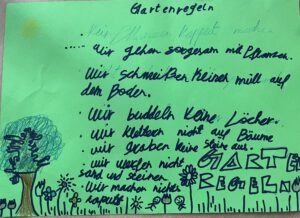 Gartenregeln
kaputt machen
Wir gehen sorgsam mit Pflanzen.
Wir schmeißen keinen müll auf
den Boden.
Wir buddeln keine Löcher.
wir klettern nicht auf Bäume
wir graben keine Steine aus.
wir werfen nicht
sand und steinen
Wir machen nichts
kaputt
GARTEN
REGELN